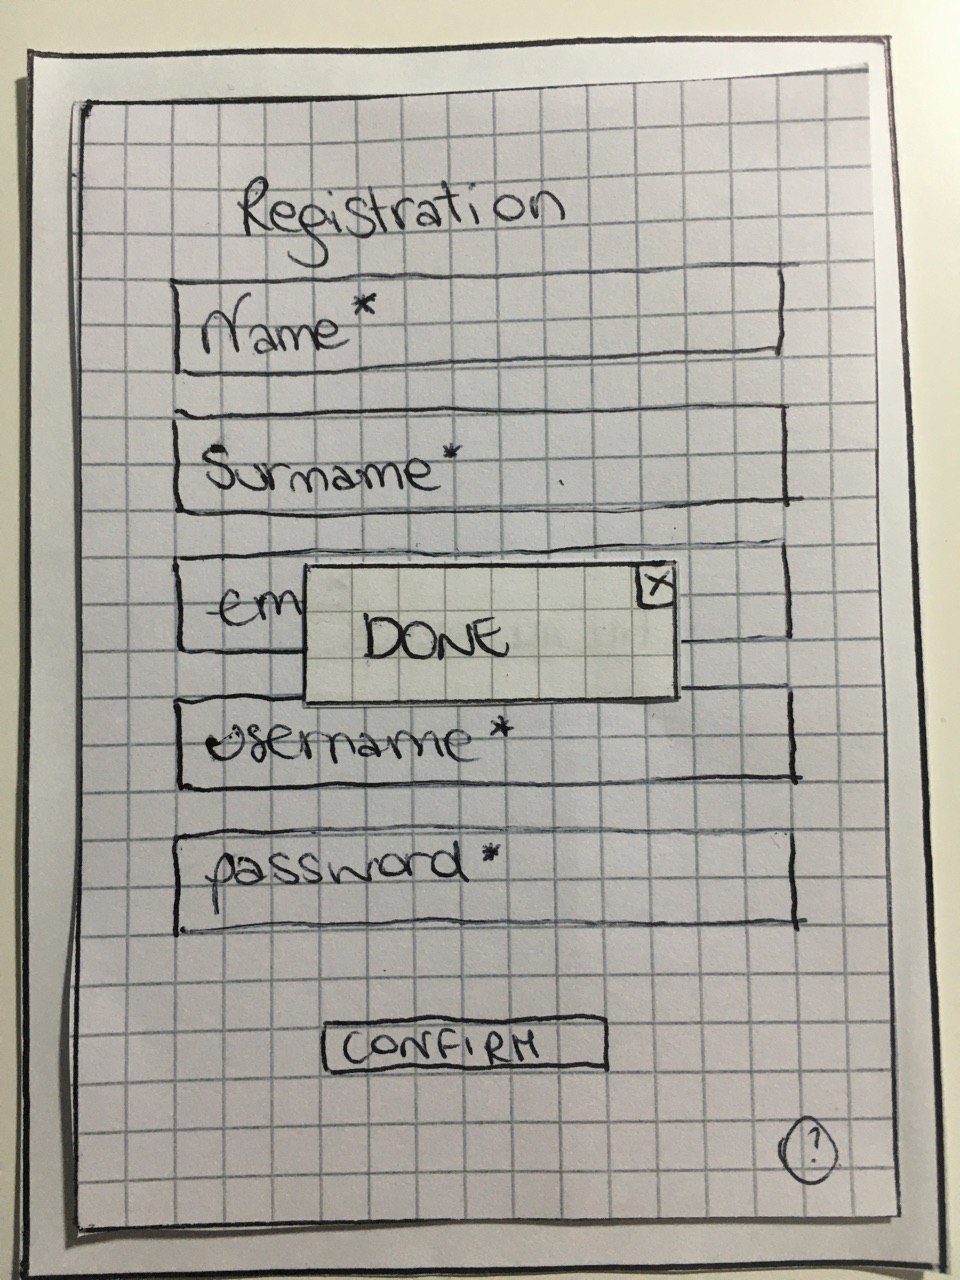 Registration
Name*
Surname*
em
X
DONE
username*
password*
CONFIRM
?